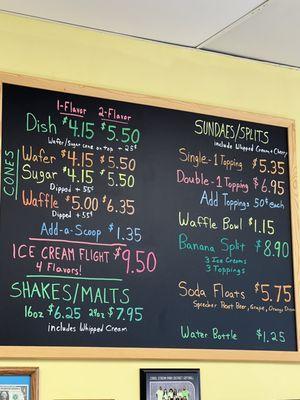 1-Flavor 2-Flavor
Dish $4.15 $5.50
Wafer/sugar cone on top + 25¢
CONES
Wafer $4.15 $5.50
Sugar $4.15 $5.50
Dipped + 55¢
Waffle $5.00 $6.35
Dipped + 55¢
Add-a-Scoop $1.35
ICE CREAM FLIGHT $9.50
4 Flavors!
SHAKES/MALTS
16oz $6.25 24oz $7.95
includes Whipped Cream
SUNDAES/SPLITS
include Whipped Cream + Cherry
Single-1 Topping $5.35
Double-1 Topping $6.95
Add Toppings 50¢ each
Waffle Bowl $1.15
Banana Split $8.90
3 Ice Creams
3 Toppings
Soda Floats $5.75
Sprecher Root Beer, Grape, Orange Dream
Water Bottle $1.25